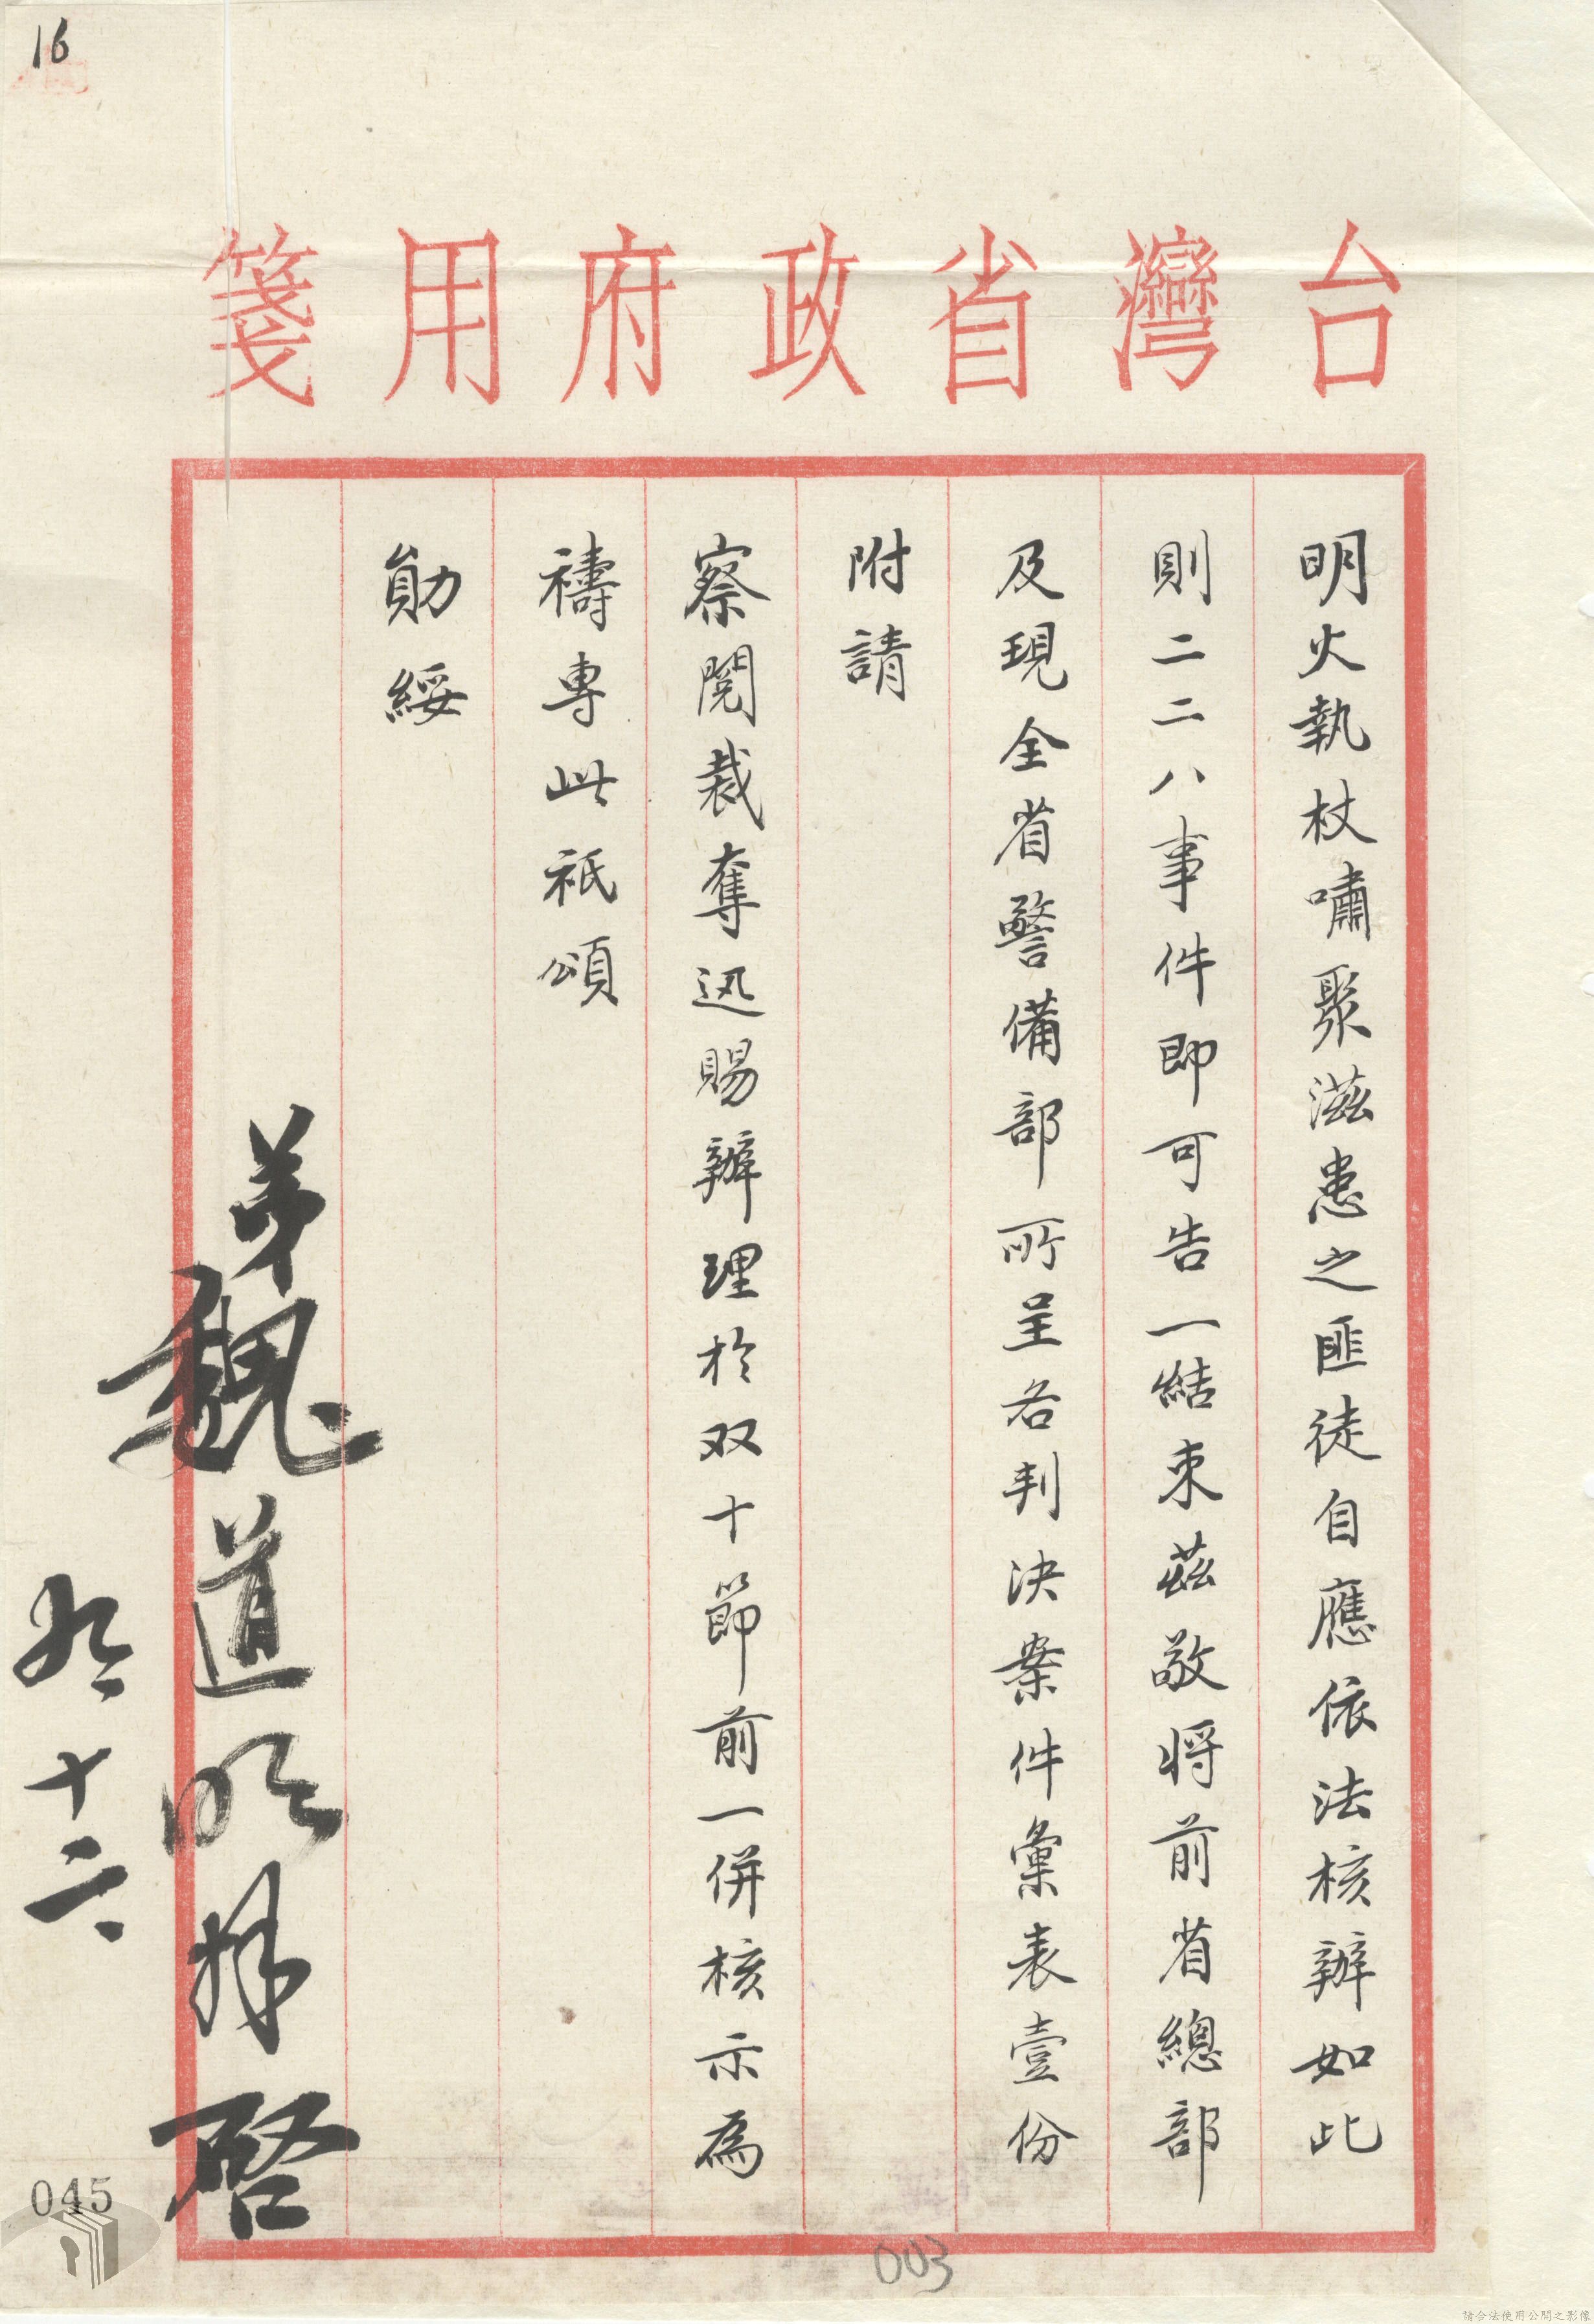 16
台灣省政府用箋
明火執杖嘯聚滋患之匪徒自應依法核辦如此
則二二八事件即可告一結束茲敬將前省總部
及現全省警備部所呈各判決案件彙表壹份
附請
察閱裁奪迅賜辦理於双十節前一併核示為
禱專此祇頌
勛綏
弟魏道明拜啓
九十二
045
003
請合法使用公開之影像